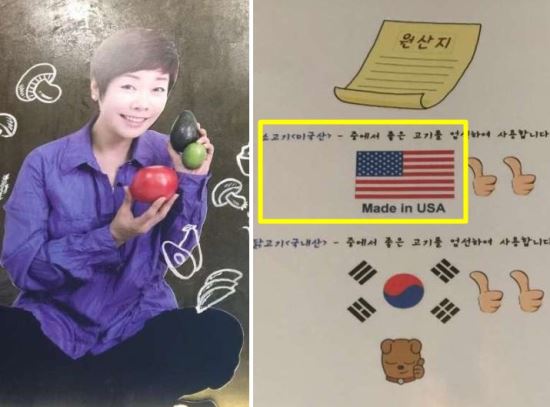 원산지
소고기<미국산> - 중에서 좋은 고기를 엄선하여 사용합니다
Made in USA
닭고기<국내산> - 중에서 좋은 고기를 엄선하여 사용합니다